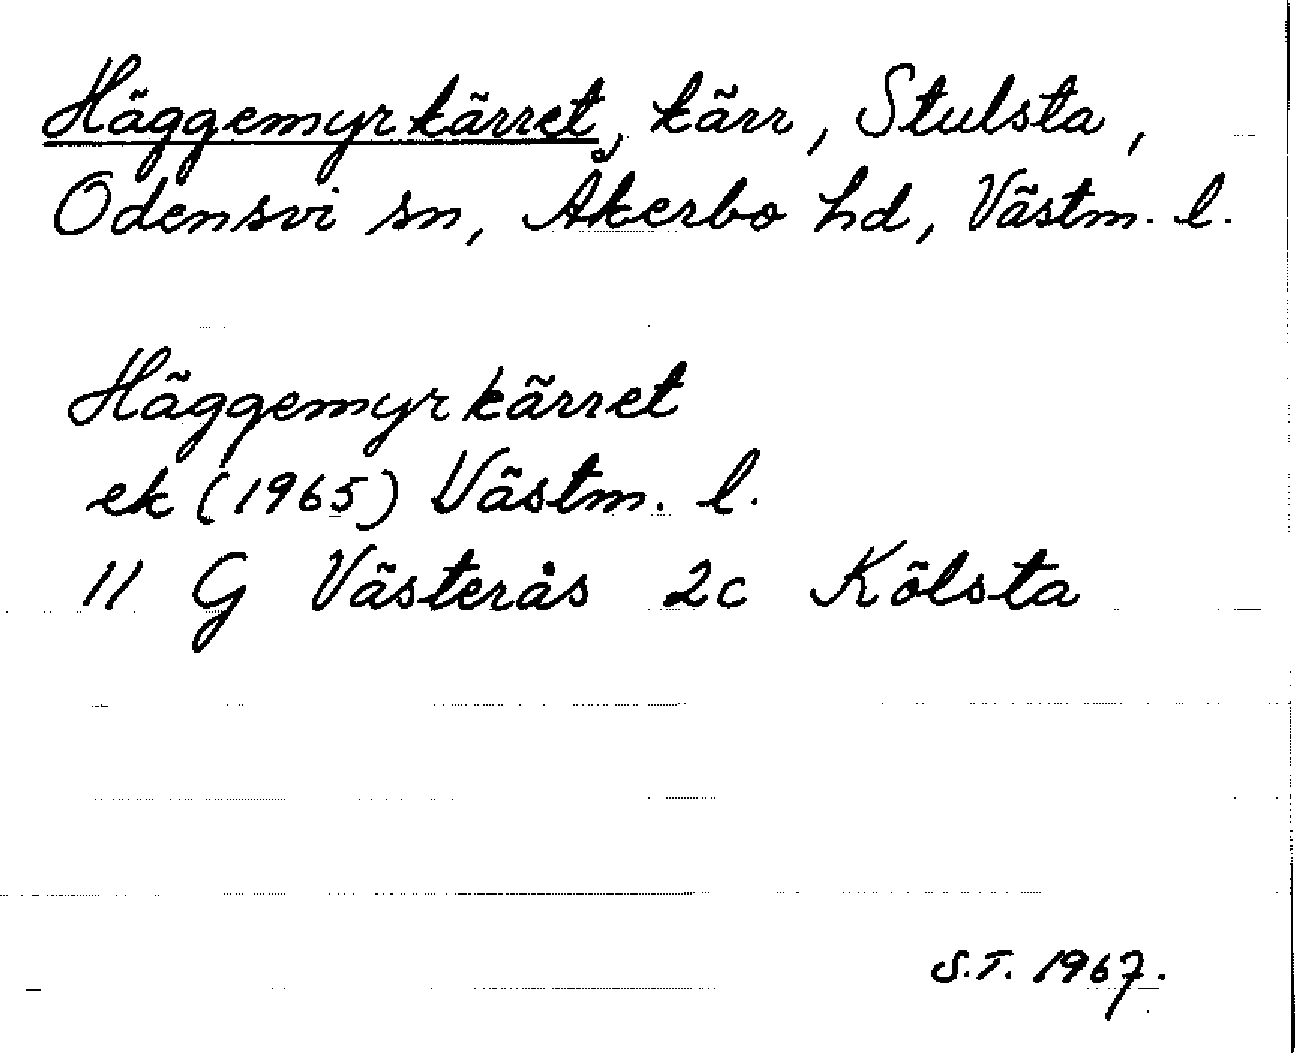 Häggemyrkärret, kärr, Stulsta,
Odensvi sn, Åkerbo hd, Västm. l.
Häggemyrkärret
ek (1965) Västm. l.
11 G Västerås 2c Kölsta
S.T. 1967.